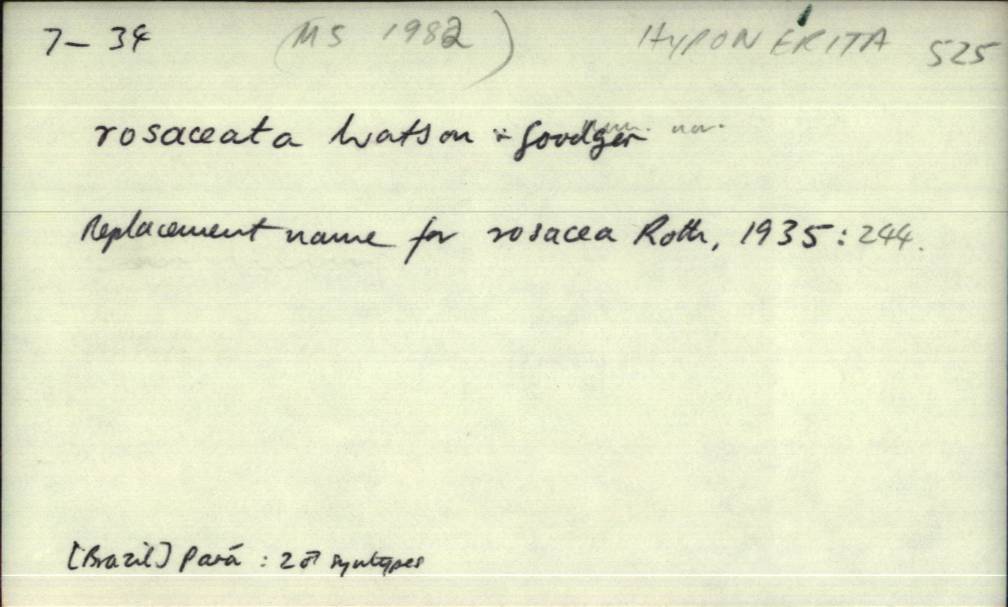 7-34 (MS 1982) HYPONERITA 525
rosaceata Watson & Goodger nom. nov.
Replacement name for rosacea Roth, 1935: 244.
[Brazil] Pará : 2♂ syntypes